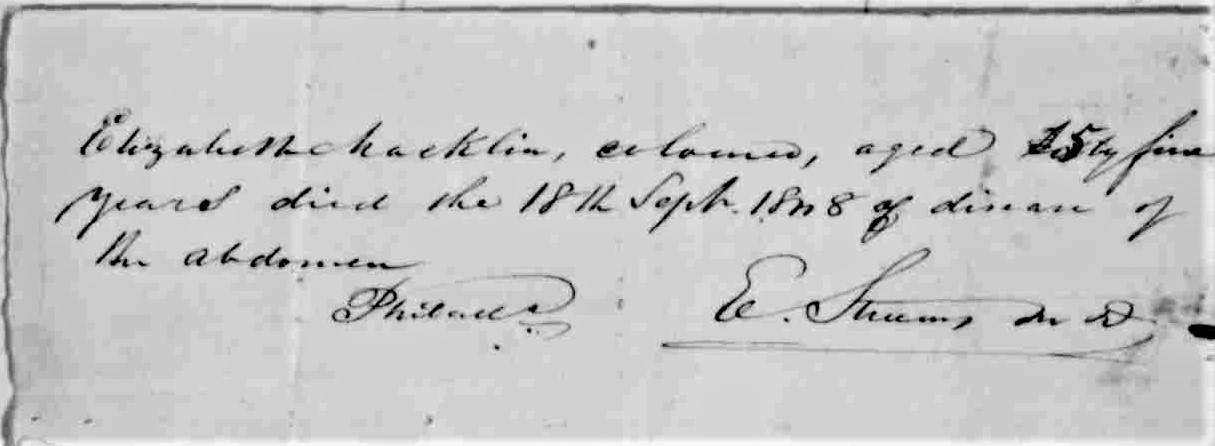 Elizabeth Macklin, coloured, aged five
years died the 18th Sept. 1848 of disease of
the abdomen
Philada
E. M D